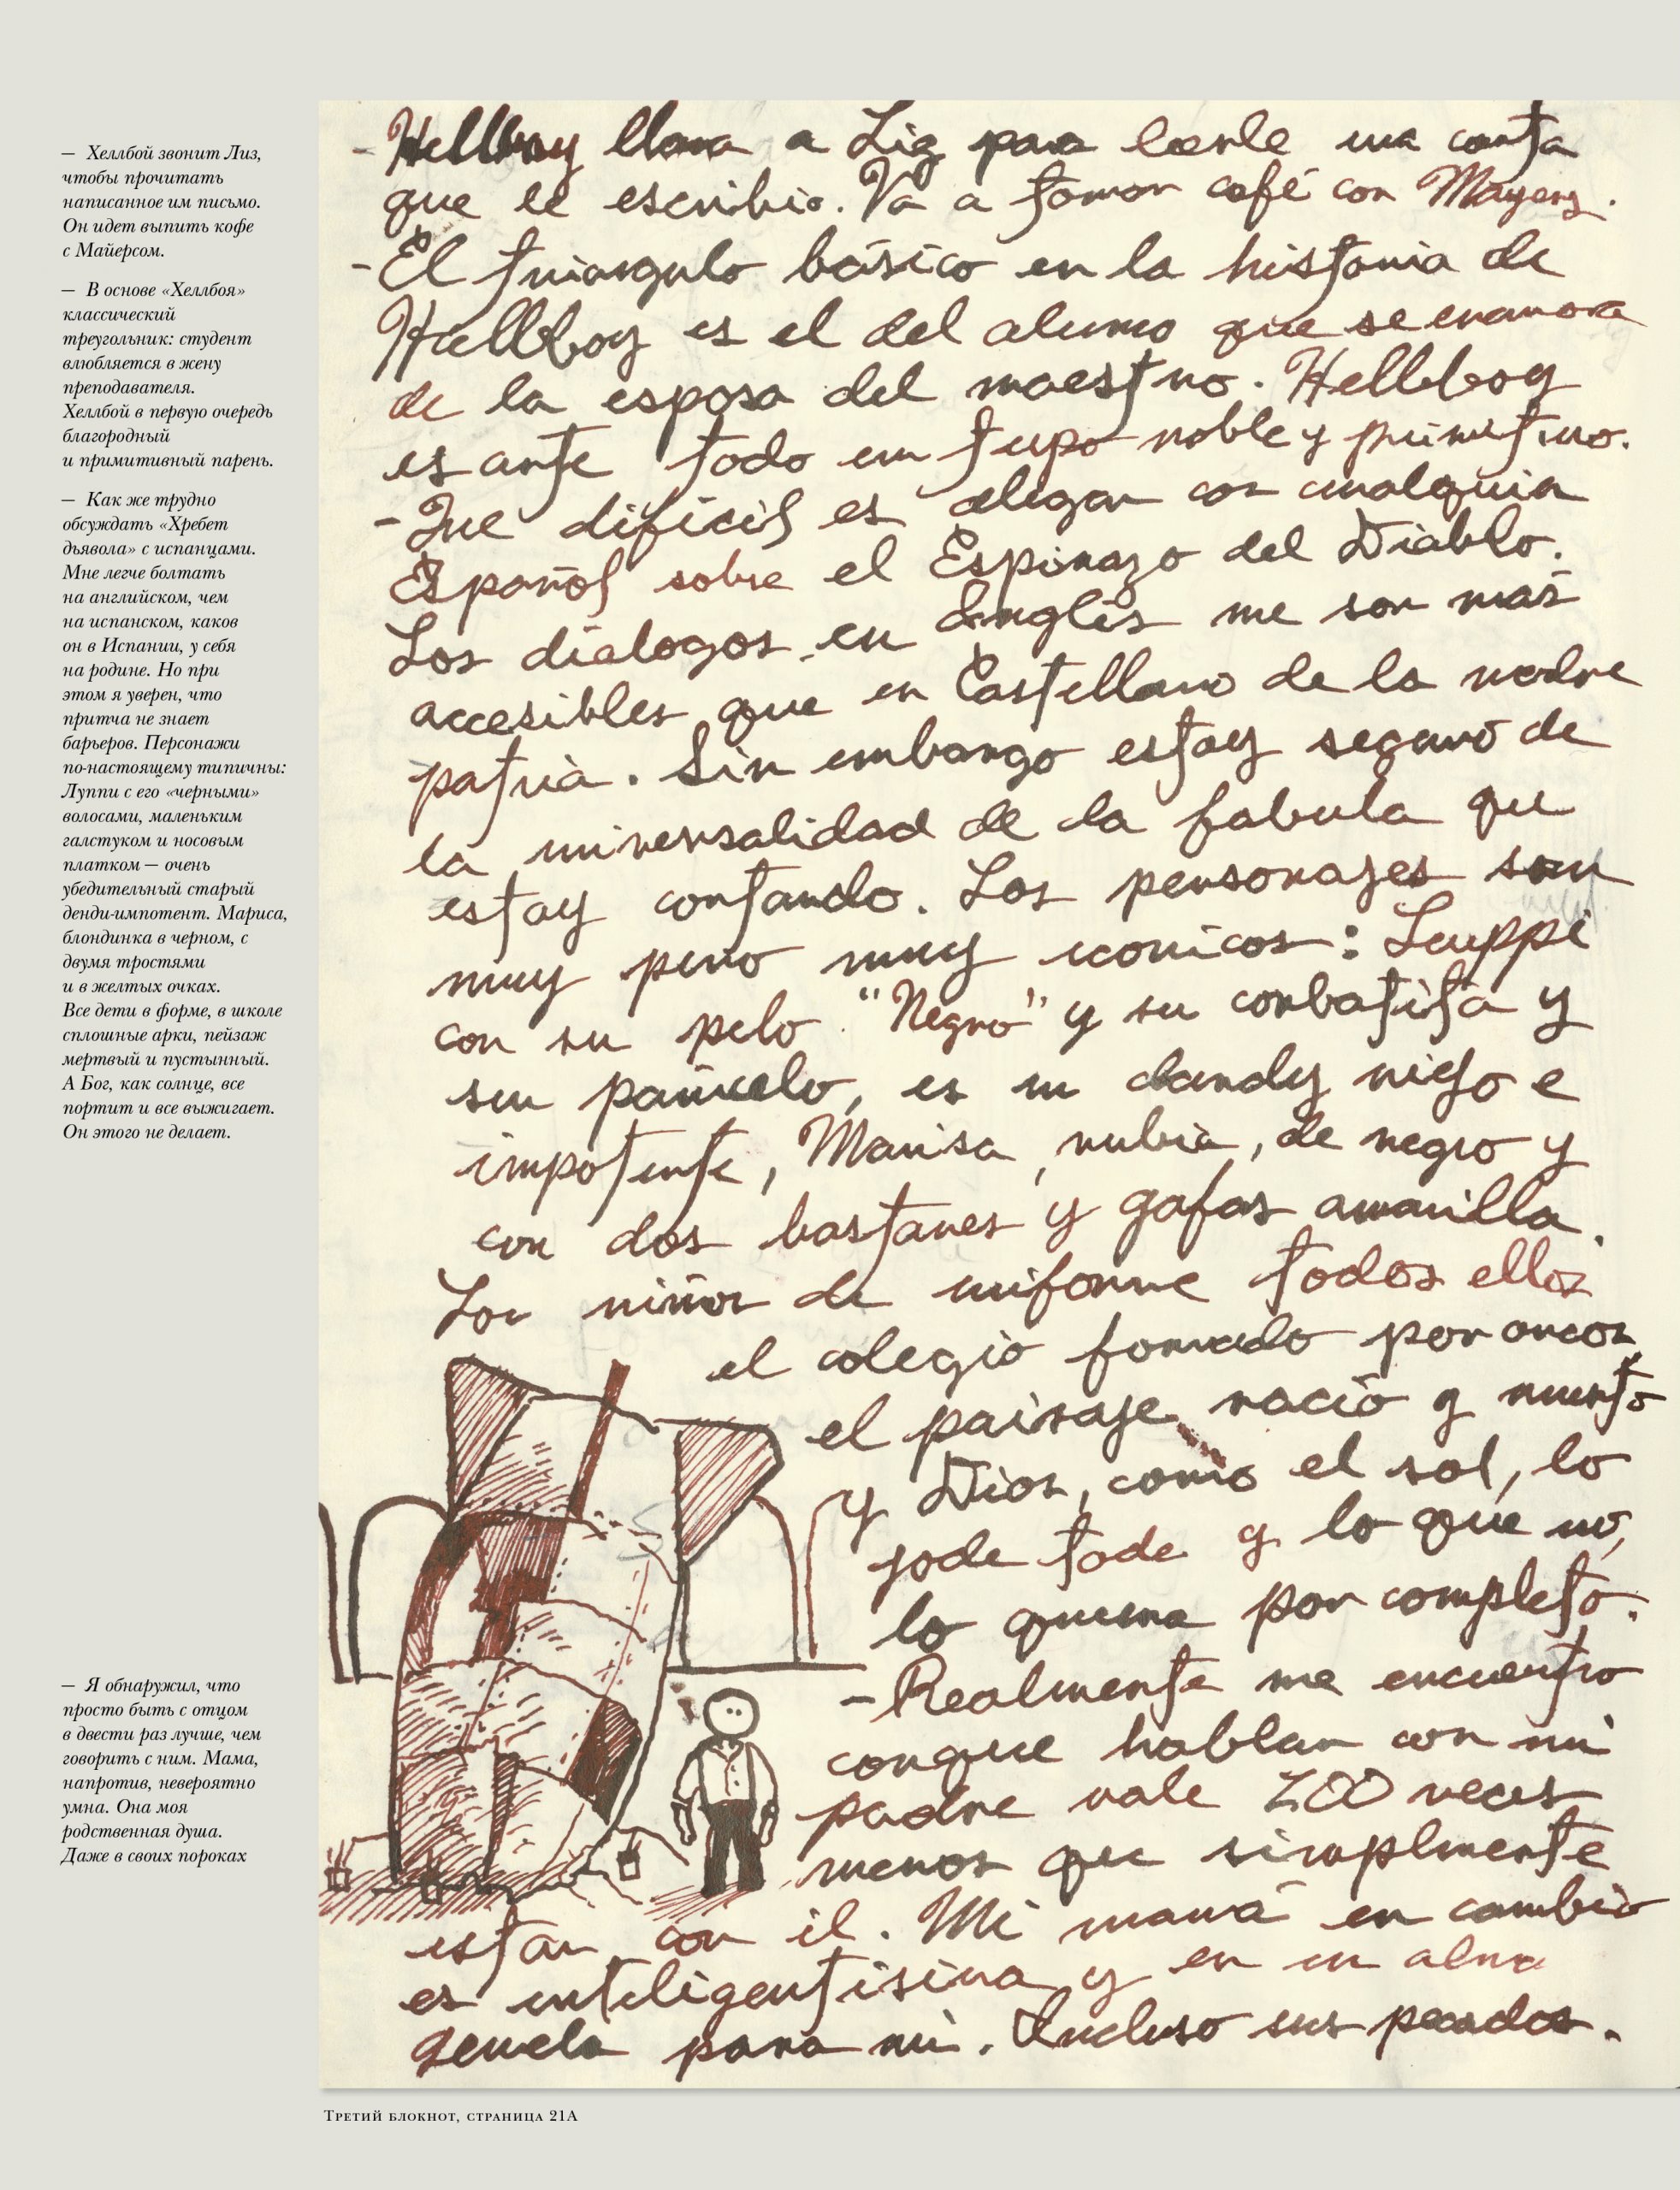 — Хеллбой звонит Лиз,
чтобы прочитать
написанное им письмо.
Он идет выпить кофе
с Майерсом.
— В основе «Хеллбоя»
классический
треугольник: студент
влюбляется в жену
преподавателя.
Хеллбой в первую очередь
благородный
и примитивный парень.
— Как же трудно
обсуждать «Хребет
дьявола» с испанцами.
Мне легче болтать
на английском, чем
на испанском, каков
он в Испании, у себя
на родине. Но при
этом я уверен, что
притча не знает
барьеров. Персонажи
по-настоящему типичны:
Луппи с его «черными»
волосами, маленьким
галстуком и носовым
платком — очень
убедительный старый
денди-импотент. Мариса,
блондинка в черном, с
двумя тростями
и в желтых очках.
Все дети в форме, в школе
сплошные арки, пейзаж
мертвый и пустынный.
А Бог, как солнце, все
портит и все выжигает.
Он этого не делает.
— Я обнаружил, что
просто быть с отцом
в двести раз лучше, чем
говорить с ним. Мама,
напротив, невероятно
умна. Она моя
родственная душа.
Даже в своих пороках
- Hellboy llama a Liz para leerle una carta
que le escribio. Va a tomar café con Mayers.
- El triangulo básico en la historia de
Hellboy es el del alumno que se enamora
de la esposa del maestro. Hellboy
es ante todo un tupo noble y primitivo.
- Que dificil es alegar con cualquier
Español sobre el Espinazo del Diablo.
Los dialogos en Inglés me son más
accesibles que en Castellano de la madre
patria. Sin embargo estoy seguro de
la universalidad de la fabula que
estoy contando. Los personajes son
muy pero muy iconicos: Luppi
con su pelo "Negro" y su corbatita y
su pañuelo, es un dandy viejo e
impotente, Marisa, rubia, de negro y
con dos bastones y gafas amarilla.
Los niños de uniforme todos ellos
el colegio formado por arcos,
el paisaje vacio y muerto
y Dios, como el sol, lo
jode todo y lo que no,
lo quema por completo.
- Realmente me encuentro
conque hablar con mi
padre vale 200 veces
menos que simplmente
estar con él. Mi mamá en cambio
es inteligentisima y en un alma
gemela para mi. Incluso sus pecados.
Третий блокнот, страница 21А